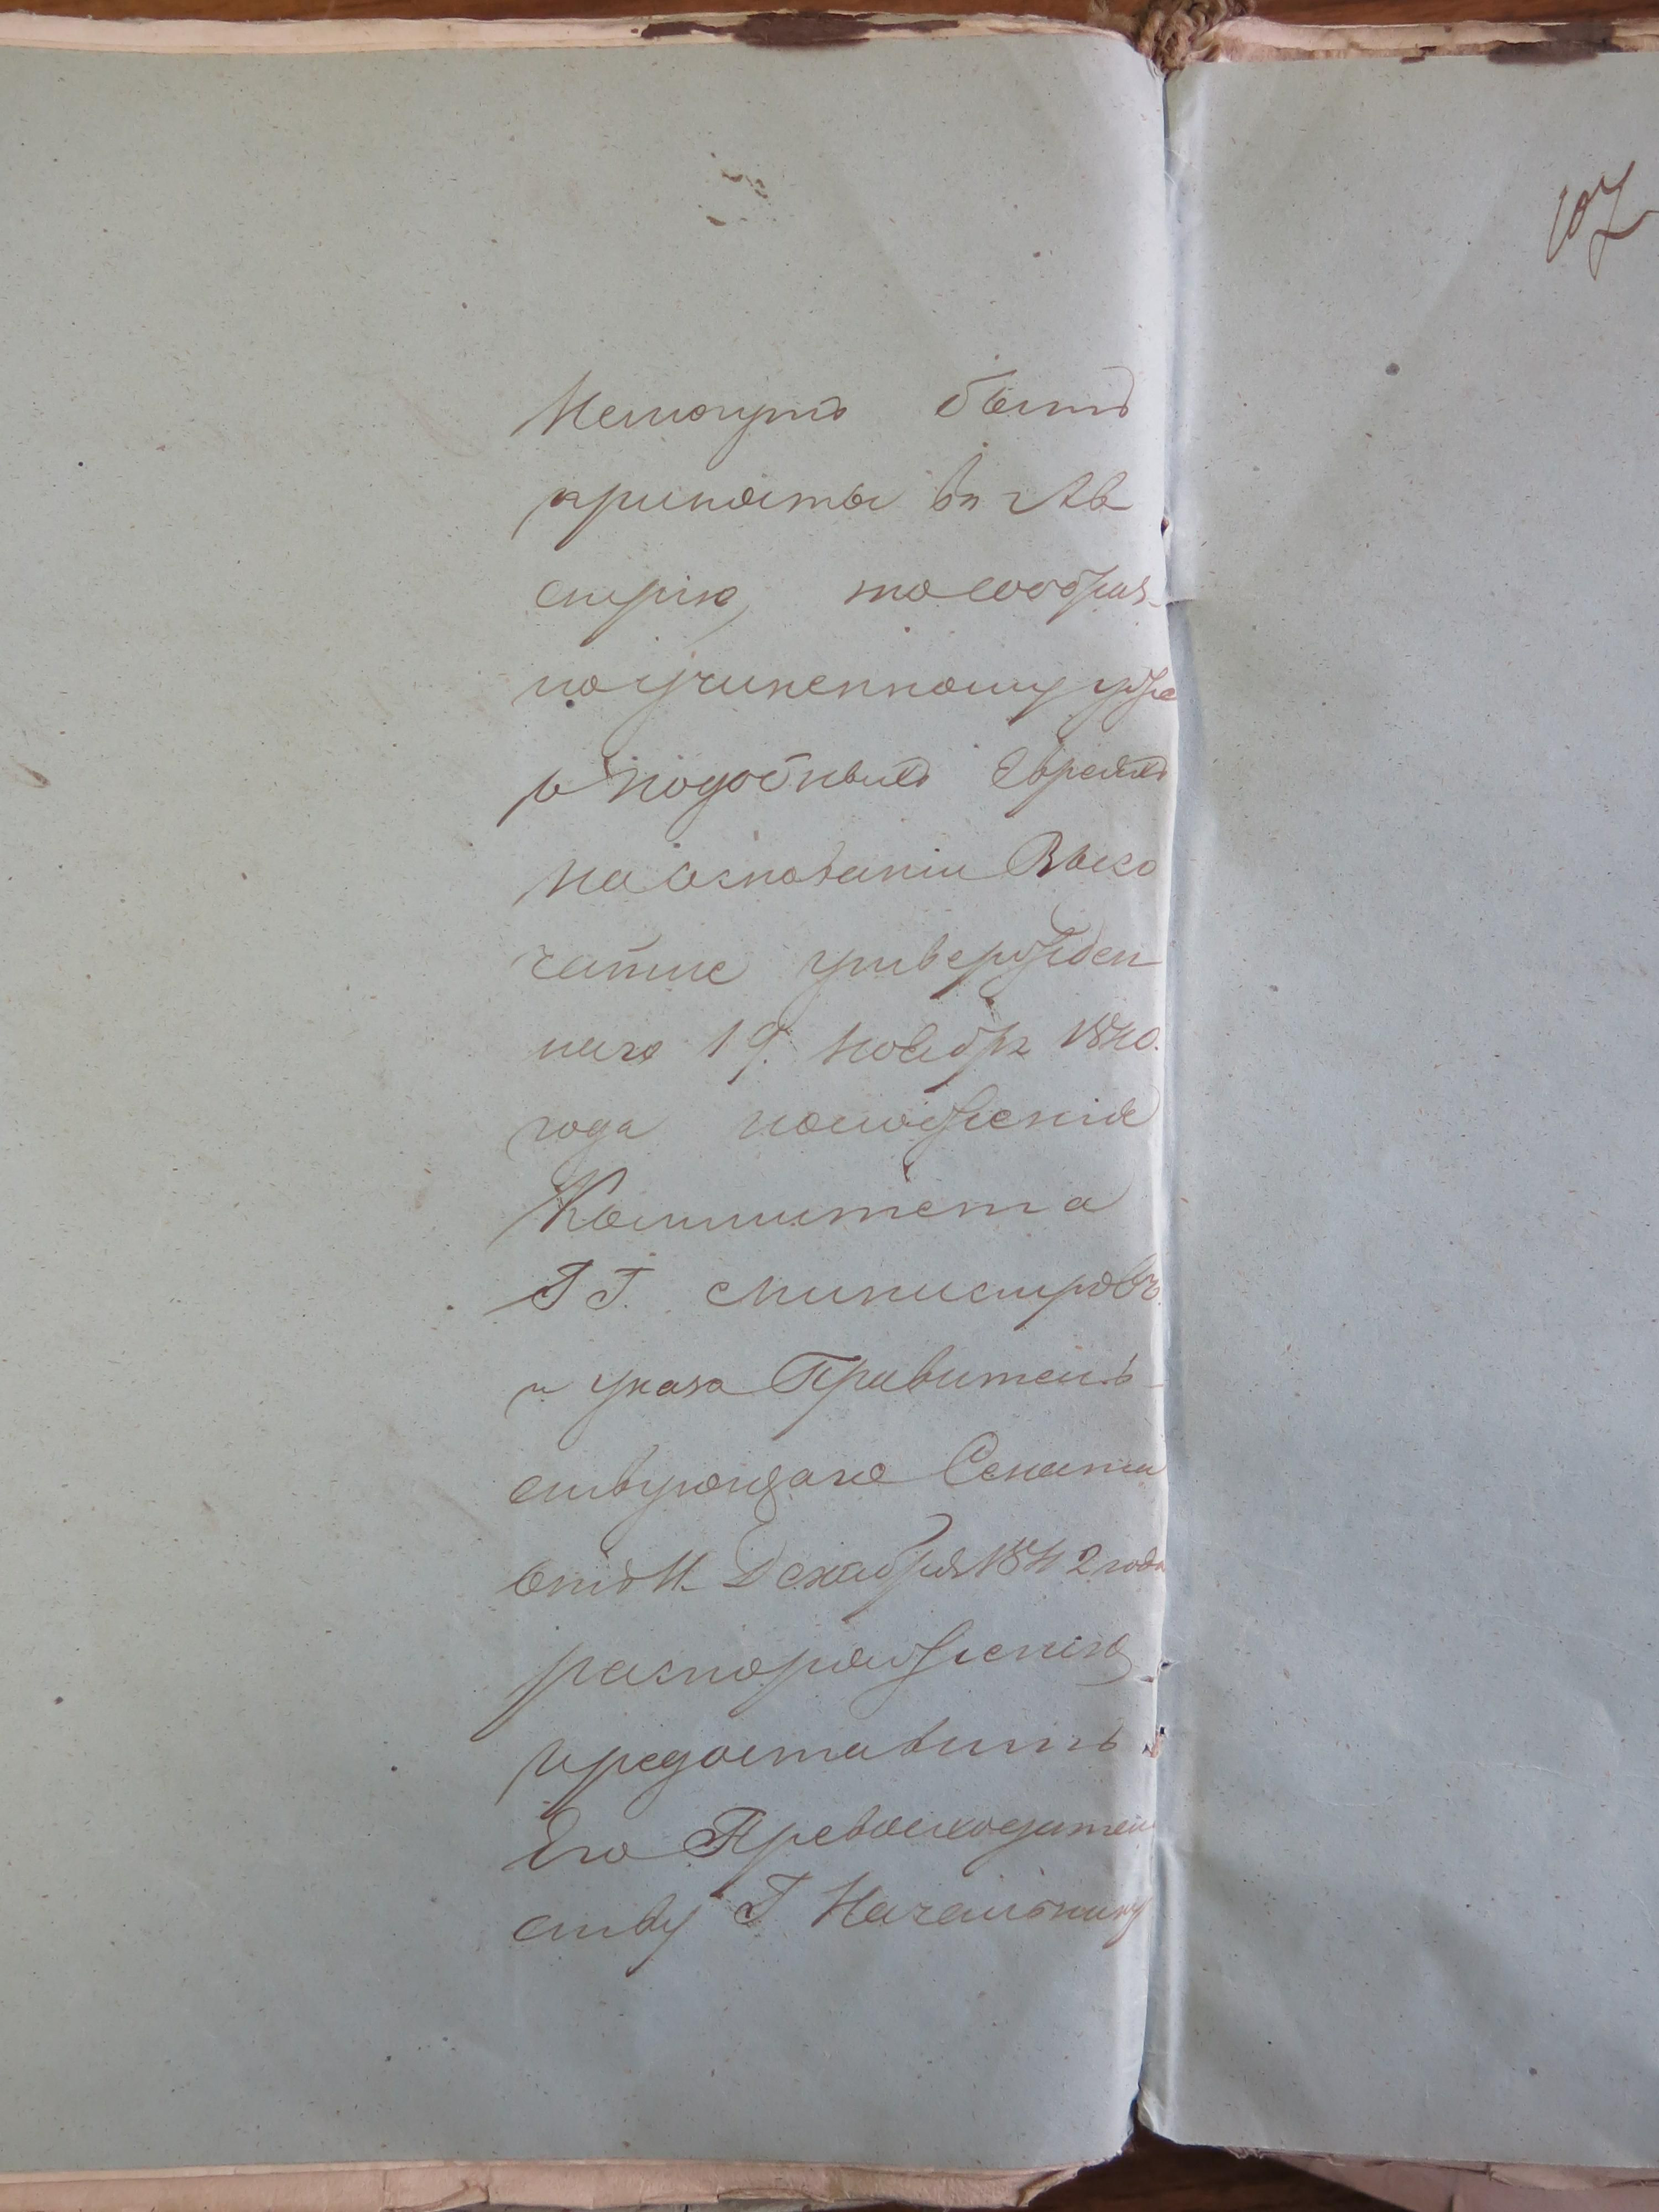 107
Немогутъ быть
приняты въ Ав
стрію, то сообраз-
но учиненному уже
о подобныхъ Евреяхъ
на основаніи Высо
чайше утвержден
наго 19. Ноября 1840.
года положенія
Коммитета
ГГ. Министровъ
и указа Правитель-
ствующаго Сената
отъ 11. Декабря 1842 года
распоряженію
предоставить
Его Превосходитель
ству Г Начальнику